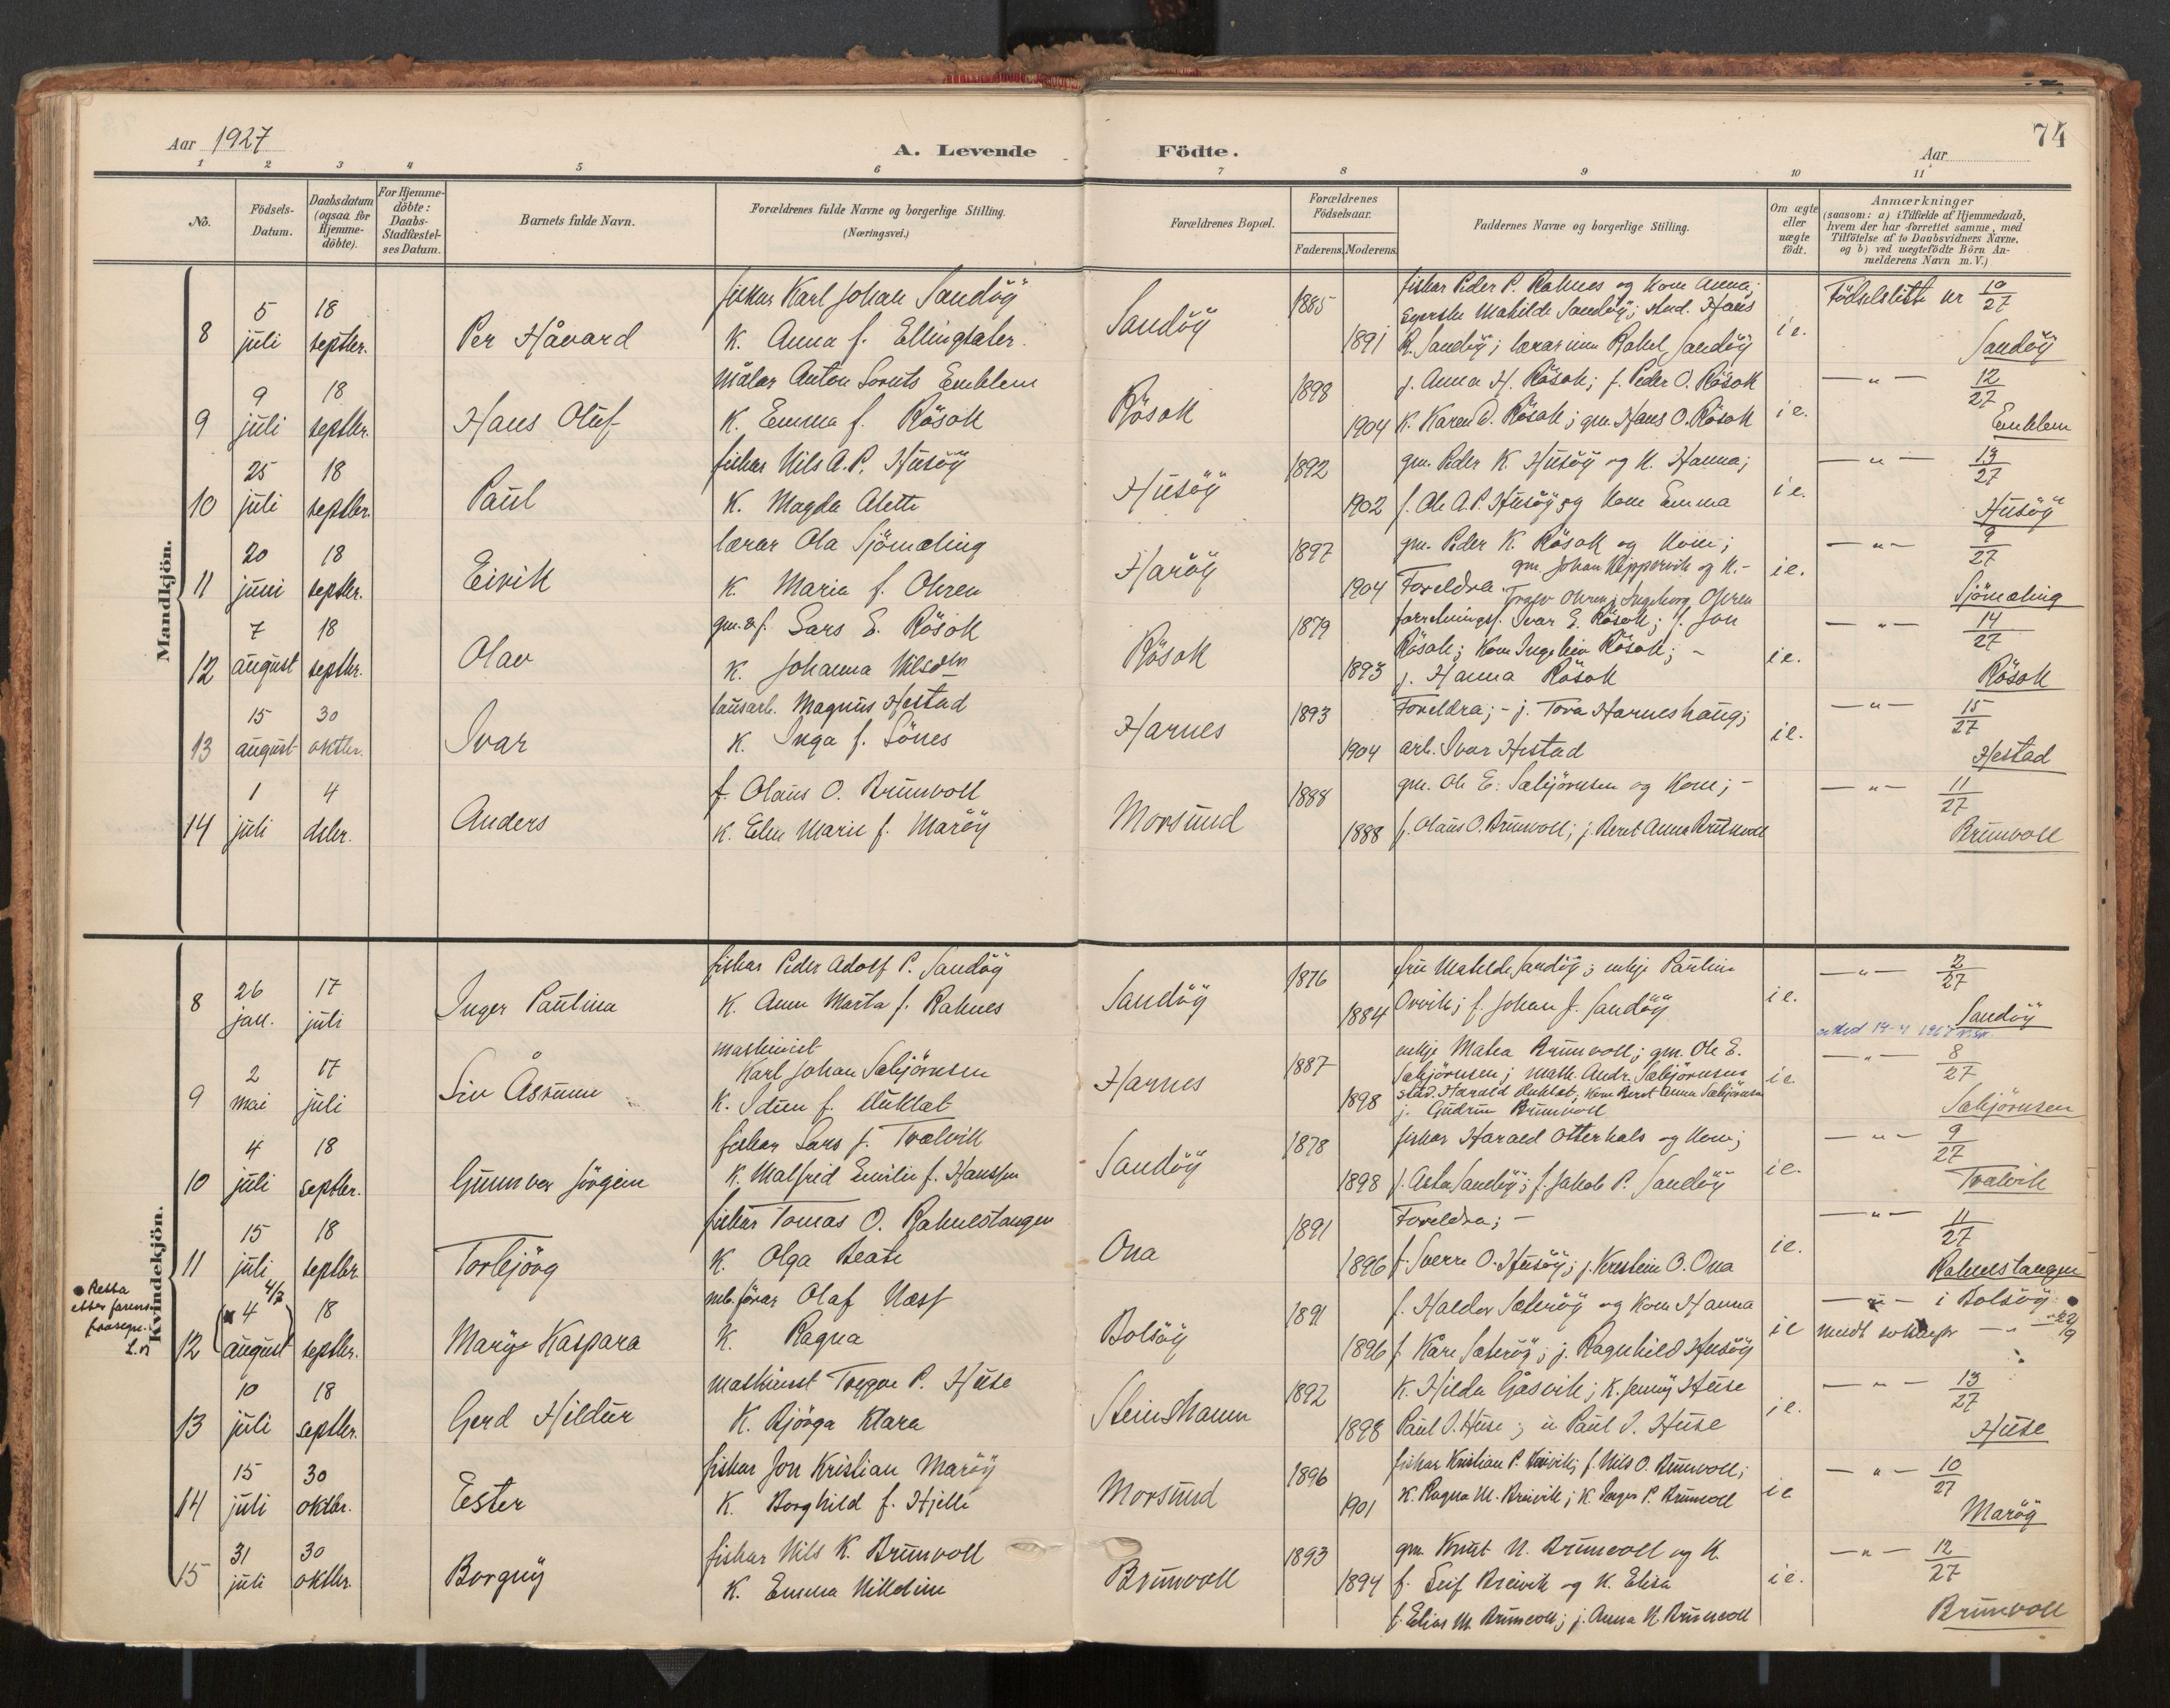 74
Aar 1927
A. Levende Födte.
Aar
1 2 3 4 5 6 7 8 9 10 11
No.
Födsels-Datum.
Daabsdatum (ogsaa for Hjemme-döbte).
For Hjemme-döbte: Daabs-Stadfæstel-ses Datum.
Barnets fulde Navn.
Forældrenes fulde Navne og borgerlige Stilling. (Næringsvei.)
Forældrenes Bopæl.
Forældrenes Födselsaar.
Faderens. Moderens.
Faddernes Navne og borgerlige Stilling.
Om ægte eller uægte födt.
Anmærkninger (saasom: a) i Tilfælde af Hjemmedaab, hvem der har forrettet samme, med Tilföielse af to Daabsvidners Navne, og b) ved uægtefödte Börn An-melderens Navn m. V.)
Mandkjön.
8 5 juli 18 septbr. Per Håvard
fiskar Karl Johan Sandöy
K. Anna f. Ellingsæter.
Sandöy 1885 1891
fiskar Peder P. Rahnes og kone Anna;
Mathilde Sandöy; stud. Hans
R. Sandöy; lærarinne Rahel Sandöy
i e. Födselsliste nr 10/27
Sandöy
9 9 juli 18 septbr. Hans Oluf
målar Anton Lorents Emblem
K. Emma f. Rösok
Rösok 1898 1904
j. Anna H. Rösok; f. Peder O. Rösok
K. Karen O. Rösok; gm. Hans O. Rösok
i e. — " — 12/27
Emblem
10 25 juli 18 septbr. Paul
fiskar Nils A. P. Husöy
K. Magda Alette
Husöy 1892 1902
gm. Peder K. Husöy og K. Hanna;
f. Ole A. P. Husöy og kone Emma
i e. — " — 13/27
Husöy
11 20 juni 18 septbr. Eivik
lærar Ola Sjömæling
K. Marie f. Ohren
Haröy 1897 1904
gm. Peder K. Rösok og kone;
gm. Johan Klippervik og K. -
Foreldra. Ohren; Ingeborg Ohren
i e. — " — 9/27
Sjömæling
12 7 august 18 septbr. Olav
gm. & f. Lars E. Rösok
K. Johanna Nilsdtr
Rösok 1879 1893
forretningsf. Ivar E. Rösok; f. Jon
Rösok; kone Rösok; -
j. Hanna Rösok
i e. — " — 14/27
Rösok
13 15 august 30 oktbr. Ivar
lausarb. Magnus Hestad
K. Inga f. Sönes
Harnes 1893 1904
Foreldra; - j. Tora Harneshaug;
arb. Ivar Hestad
i e. — " — 15/27
Hestad
14 1 juli 4 desbr. Anders
f. Olaus O. Brunvoll
K. Elen Marie f. Maröy
Morsund 1888 1888
gm. Ole E. Sæbjörnsen og kone; -
f. Olaus O. Brunvoll; j. Beret Anna Brunvoll
— " — 11/27
Brunvoll
Kvindekjön.
8 26 jan. 17 juli Inger Paulina
fiskar Peder Adolf P. Sandöy
K. Ane Marta f. Rahnes
Sandöy 1876 1884
fru Mathilde Sandöy; enkje Pauline
Orvik; f. Johan J. Sandöy
i e. — " — 2/27
Sandöy
9 2 mai 17 juli Liv Åsrunn
maskinist
Karl Johan Sæbjörnsen
K. Idun f. Huklat
Harnes 1887 1898
enkje Matea Brunvoll; gm. Ole E.
Sæbjörnsen; mask. Andr. Sæbjörnsens
stud. Harald Huklat; kone Beret Anna Sæbjörnsen
j. Gudrun Brunvoll
i e. — " — 8/27
Sæbjörnsen
10 4 juli 18 septbr. Gunnvor Jörgine
fiskar Lars J. Trælvik
K. Malfred Emilie f. Hanssen
Sandöy 1878 1898
fiskar Harald Otterhals og kone;
j. Asta Sandöy; f. Jakob P. Sandöy
i e. — " — 9/27
Trælvik
11 15 juli 18 septbr. Torbjörg
fiskar Tomas O. Rahnestangen
K. Olga Beate
Ona 1891 1896
Foreldra; -
f. Sverre O. Husöy; j. Krestine O. Ona
i e. — " — 11/27
Rahnestangen
● Retta etter farens
4/7
12 4 august 18 septbr. Mary Kaspara
mb. förar Olaf Næss
K. Ragna
Bolsöy 1891 1896
f. Haldor Sæteröy og kone Hanna
f. Kåre Sæteröy; j. Ragnhild Husöy
i e — " — i Bolsöy. ●
meldt 22/9
13 10 juli 18 septbr. Gerd Hildur
maskinist Trygve P. Huse
K. Björga Klara
Steinshamn 1892 1898
K. Hilda Gåsvik; K. Jenny Huse
Paul I. Huse; u Paul I. Huse
i e. — " — 13/27
Huse
14 15 juli 30 oktbr. Ester
fiskar Jon Kristian Maröy
K. Borghild f. Hjelle
Morsund 1896 1901
fiskar Kristian P. Breivik; f. Nils O. Brunvoll;
K. Ragna M. Breivik; K. Inger P. Brunvoll
i e — " — 10/27
Maröy
15 31 juli 30 oktbr. Borgny
fiskar Nils K. Brunvoll
K. Emma Nikoline
Brunvoll 1893 1894
gm. Knut N. Brunvoll og K.
f. Leif Breivik og K. Elisa
f. Elias M. Brunvoll; j. Anna N. Brunvoll
i e. — " — 12/27
Brunvoll